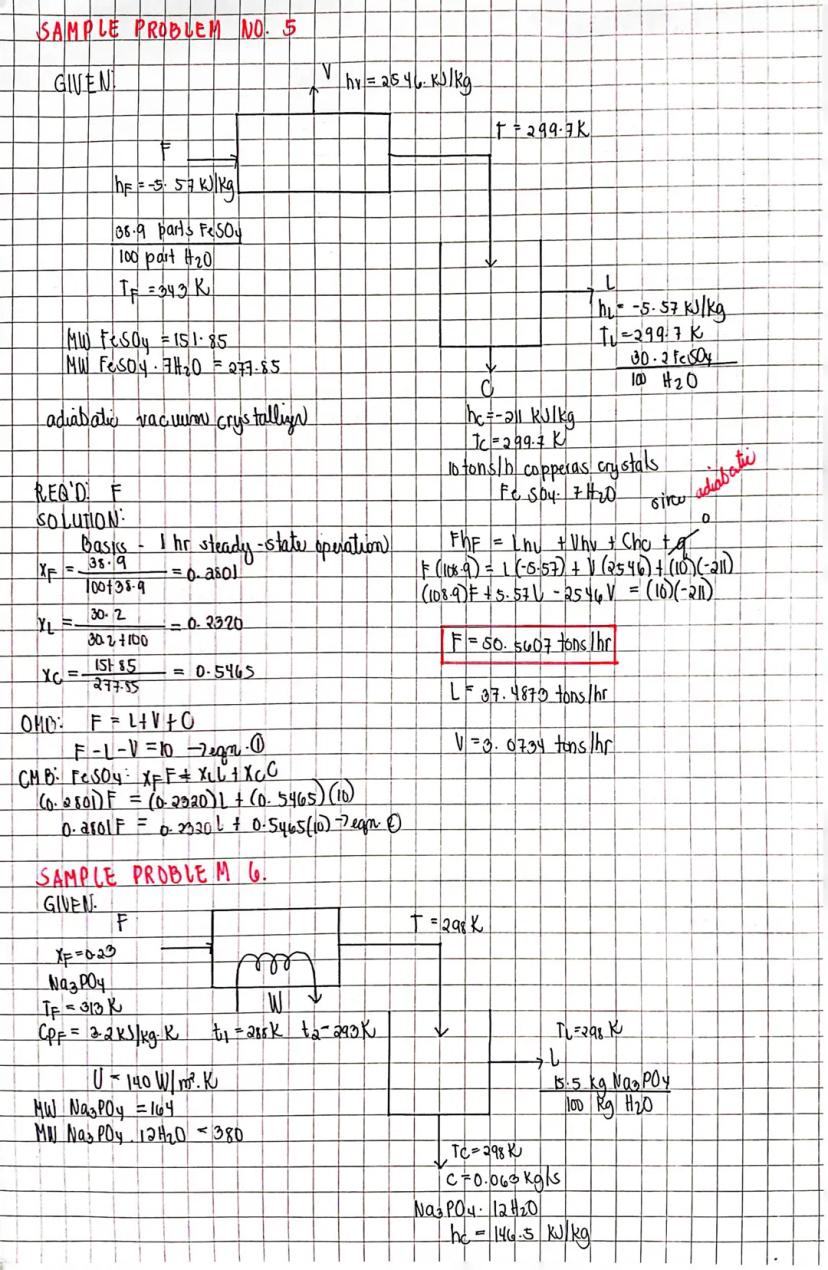 SAMPLE PROBLEM NO. 5
GIVEN:
V hv = 2546. KJ/kg
T = 299.7K
F
hF = -5.57 KJ/kg
38.9 parts FeSO4
100 part H2O
TF = 343 K
L
hL = -5.57 KJ/kg
TL = 299.7 K
30.2 FeSO4
100 H2O
MW FeSO4 = 151.85
MW FeSO4 . 7H2O = 277.85
C
adiabatic vacuum crystallizn
hc = -211 KJ/kg
Tc = 299.7 K
10 tons/h copperas crystals
FeSO4. 7H2O
since adiabatic
REQ'D: F
SOLUTION:
Basis - 1 hr steady-state operation)
XF = 38.9 / 100+38.9 = 0.2801
XL = 30.2 / 30.2+100 = 0.2320
XC = 151.85 / 277.85 = 0.5465
OMB: F = L+V+C
F-L-V = 10 → eqn. ①
CMB: FeSO4: XFF = XLL + XCC
(0.2801)F = (0.2320)L + (0.5465)(10)
0.2801F = 0.2320L + 0.5465(10) → eqn ②
FhF = LhL + Vhv + Chc + q 0
F(108.9) = L(-5.57) + V(2546) + (10)(-211)
(108.9)F + 5.57L - 2546V = (10)(-211)
F = 50.5607 tons/hr
L = 37.4873 tons/hr
V = 3.0734 tons/hr
SAMPLE PROBLEM 6.
GIVEN.
F
T = 298K
XF = 0.23
Na3PO4
TF = 313 K
CpF = 3.2 kJ/kg.K
W
t1 = 288K t2 - 293K
TL = 298 K
L
15.5 kg Na3PO4
100 kg H2O
U = 140 W/m².K
MW Na3PO4 = 164
MW Na3PO4 . 12H2O = 380
Tc = 298 K
C = 0.063 kg/s
Na3PO4. 12H2O
hc = 146.5 KJ/kg